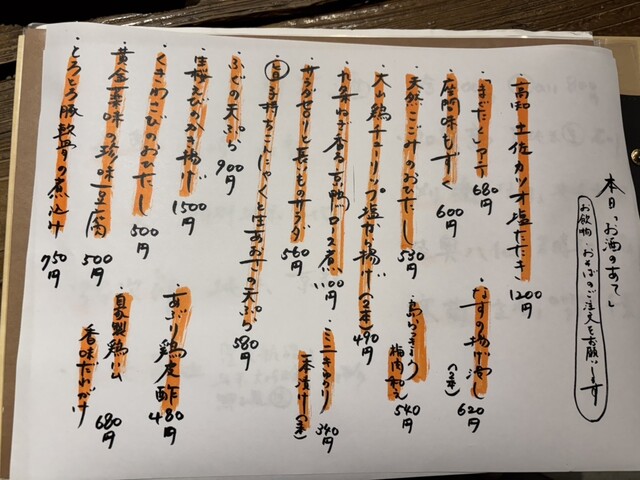 本日、お酒のあて
お飲物、おそばのご注文をお願いします
・高知 土佐カツオ塩たたき 1200円
・まぐたくアテ 680円
・座間味もずく 600円
・天然こごみのおひたし 530円
・大山鶏チューリップ塩から揚げ(2本) 490円
・九条ねぎ香る京鴨ロース煮 1100円
・サラダセロリと長いものサラダ 560円
・旨玉こんにゃくと生あおさの天ぷら 580円
・ふぐの天ぷら 900円
・生桜えびのかき揚げ 1500円
・くきわさびのおひたし 500円
・黄金薬味の珍味豆腐 500円
・とろとろ豚軟骨の煮込み 750円
・なすの揚げ浸し(2本) 620円
・島らっきょう梅肉和え 540円
・ミニきゅうり一本漬け(2本) 340円
・あぶり鶏皮酢 480円
・自家製鶏ハム香味だれがけ 680円